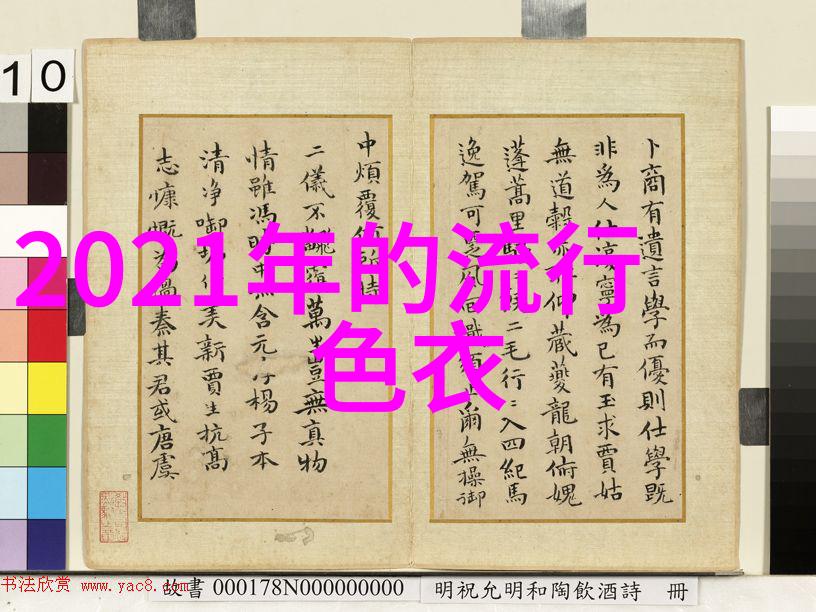 10
卜商有遺言學而優則仕學既
非為人仕寧為己有玉求賈姑
無道穀藏夔龍朝俯媿
蓬蒿里二毛行入四紀馬
逸駕可風爾無操御
中煩覆時
二儀不萬豈無真物
情雖馮含元楊子本
清淨美新賈生抗高
志慷慨秦其君或唐虞
2021年的流行
色衣
书法欣赏 www.yac8.com
故書 000178N000000000 明祝允明和陶飲酒詩 冊